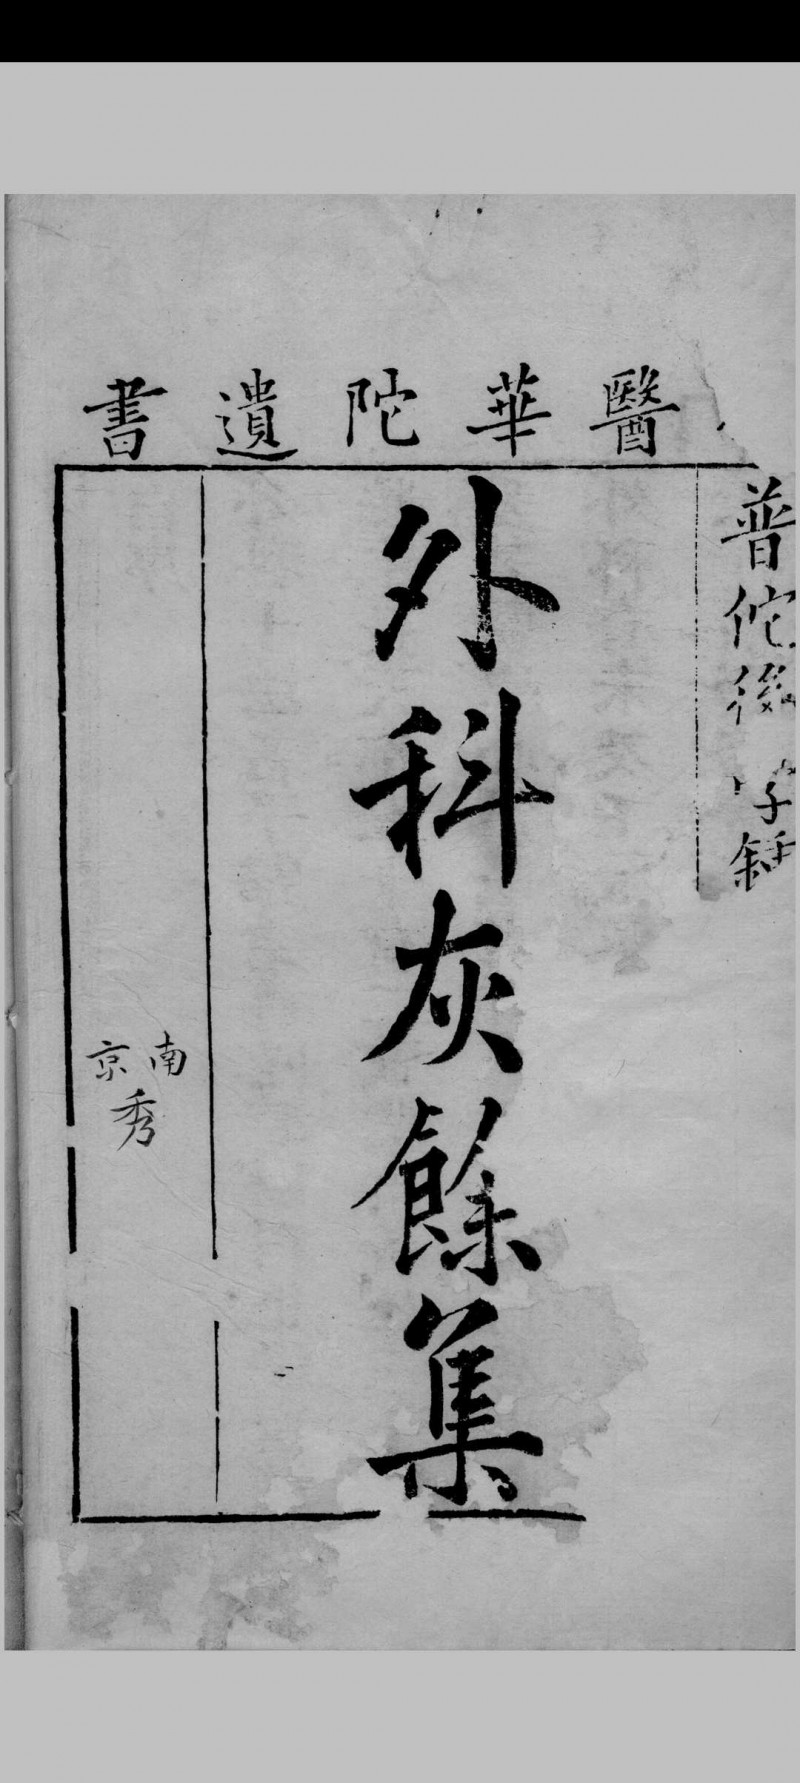 醫華陀遺書
普陀後
字
外科灰餘集
南京
秀